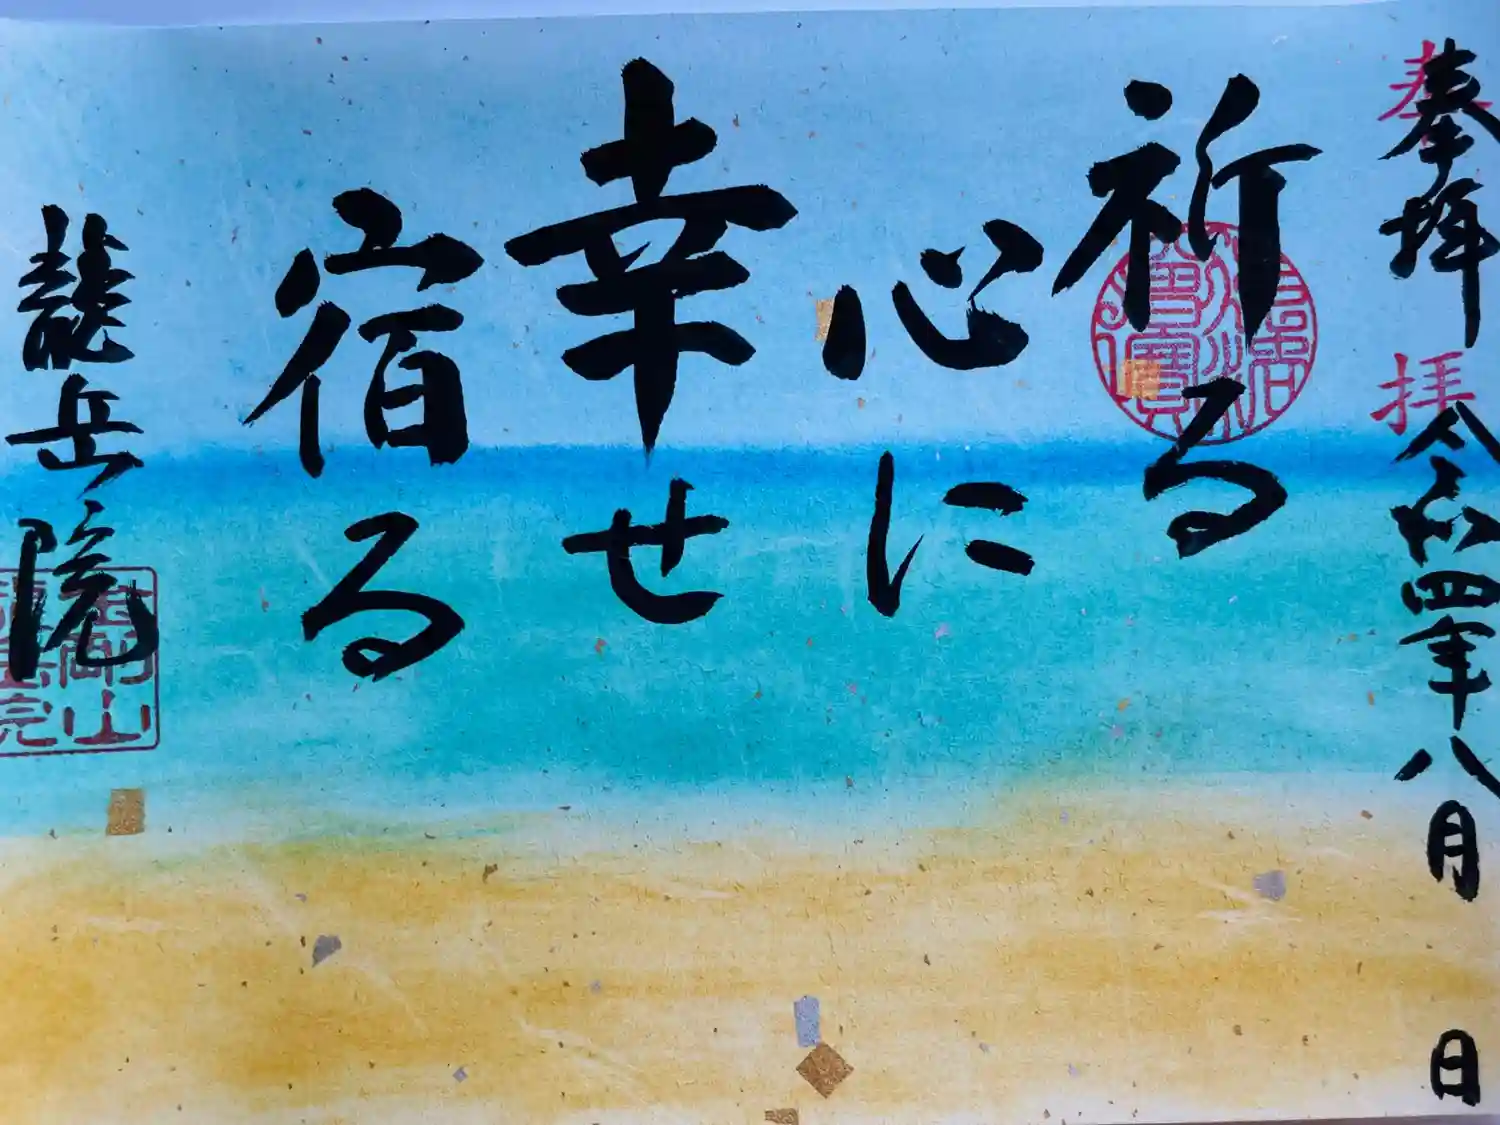 奉拝 令和四年八月 日
奉拝
祈る
心に
幸せ
宿る
龍岳院
金剛山